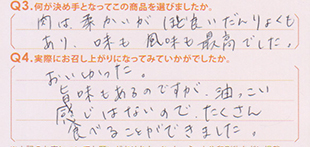 Q3.何が決め手となってこの商品を選びましたか。
肉は柔かいが ほど良いだんりょくも
あり、味も 風味も最高でした。
Q4.実際にお召し上がりになってみていかがでしたか。
おいしかった。
旨味もあるのですが、油っこい
感じはないので、たくさん
食べることができました。